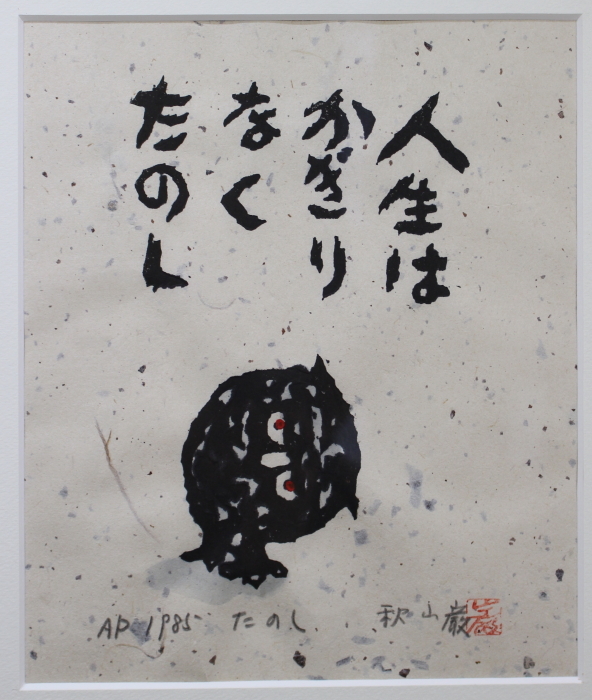 人生は
かぎり
なく
たのし
AP 1985 たのし 秋山巌
巌